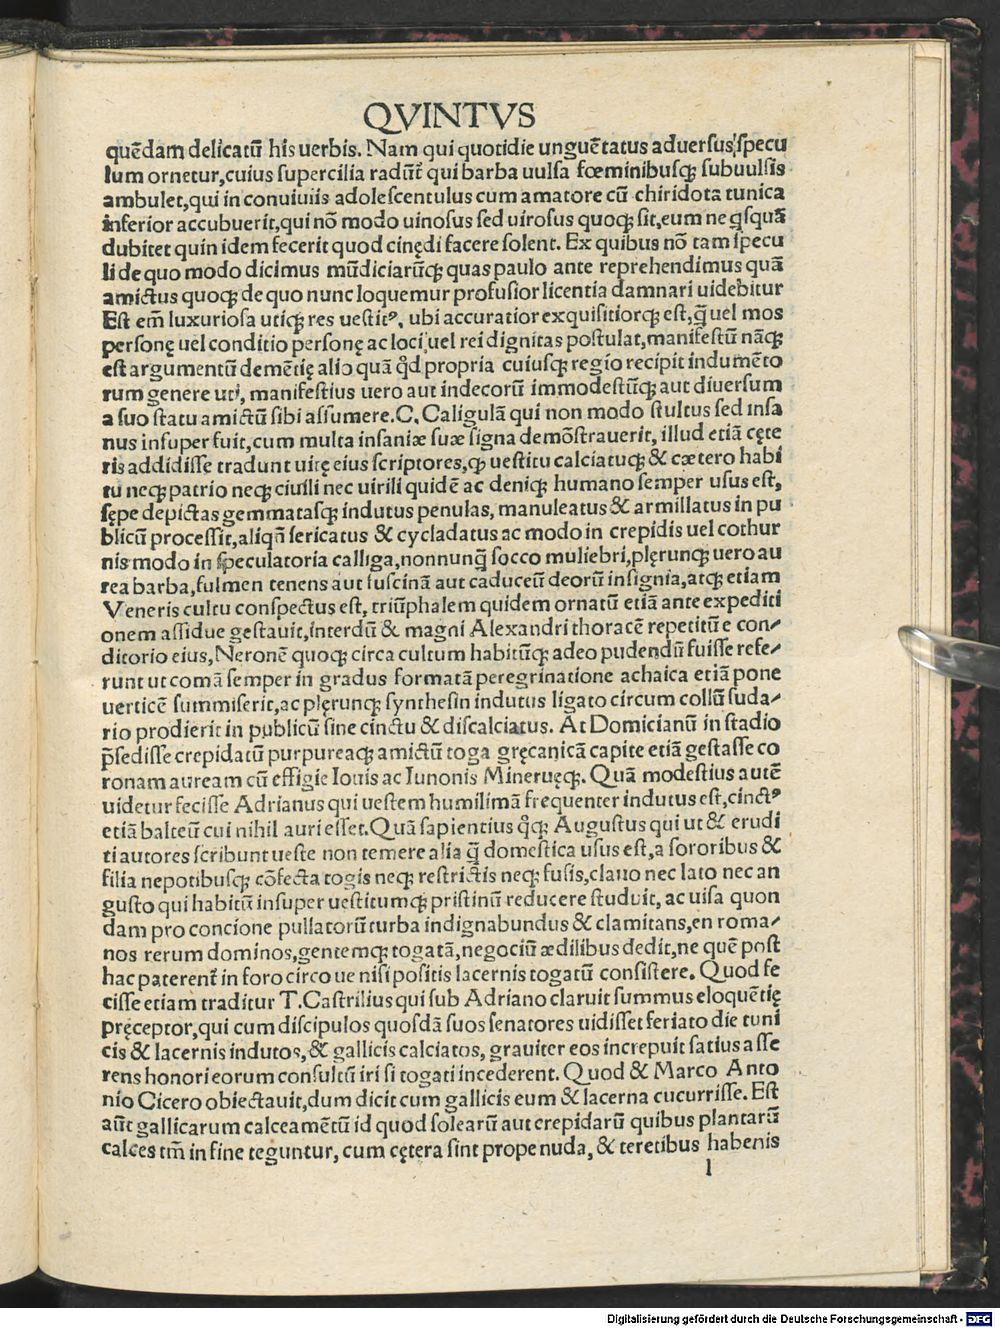 QVINTVS
quēdam delicatū his uerbis. Nam qui quotidie unguētatus aduersus specu
lum ornetur, cuius supercilia radūt̃ qui barba uulsa fœminibusqꝫ subuulsis
ambulet, qui in conuiuiis adolescentulus cum amatore cū chiridota tunica
inferior accubuerit, qui nō modo uinosus sed uirosus quoqꝫ sit, eum ne qͥsquā
dubitet quin idem fecerit quod cinędi facere solent. Ex quibus nō tam specu
li de quo modo dicimus mūdiciarūqꝫ quas paulo ante reprehendimus quā
amictus quoqꝫ de quo nunc loquemur profusior licentia damnari uidebitur
Est em̄ luxuriosa utiqꝫ res uestitꝰ, ubi accuratior exquisitiorqꝫ est, q̄ uel mos
personę uel conditio personę ac loci uel rei dignitas postulat, manifestū nāqꝫ
est argumentū demētię alio quā qͥd propria cuiusqꝫ regio recipit indumēto
rum genere uti, manifestius uero aut indecorū immodestūqꝫ aut diuersum
a suo statu amictū sibi assumere. C. Caligulā qui non modo stultus sed insa
nus insuper fuit, cum multa insaniæ suæ signa demōstrauerit, illud etiā cęte
ris addidisse tradunt uitę eius scriptores, ꝙ uestitu calciatuqꝫ & cætero habi
tu neqꝫ patrio neqꝫ ciuili nec uirili quidē ac deniqꝫ humano semper usus est,
sępe depictas gemmatasqꝫ indutus penulas, manuleatus & armillatus in pu
blicū processit, aliqñ sericatus & cycladatus ac modo in crepidis uel cothur
nis modo in speculatoria calliga, nonnunq̄ socco muliebri, plęrunqꝫ uero au
rea barba, fulmen tenens aut fuscinā aut caduceū deorū insignia, atqꝫ etiam
Veneris cultu conspectus est, triūphalem quidem ornatū etiā ante expediti
onem assidue gestauit, interdū & magni Alexandri thoracē repetitū e con⸗
ditorio eius, Neronē quoqꝫ circa cultum habitūqꝫ adeo pudendū fuisse refe⸗
runt ut comā semper in gradus formatā peregrinatione achaica etiā pone
uerticē summiserit, ac plęrunqꝫ synthesin indutus ligato circum collū suda⸗
rio prodierit in publicū sine cinctu & discalciatus. At Domicianū in stadio
p̄sedisse crepidatū purpureaqꝫ amictū toga gręcanicā capite etiā gestasse co
ronam auream cū effigie Iouis ac Iunonis Mineruęqꝫ. Quā modestius autē
uidetur fecisse Adrianus qui uestem humilimā frequenter indutus est, cinctꝰ
etiā balteū cui nihil auri esset. Quā sapientius qͦqꝫ Augustus qui ut & erudi
ti autores scribunt ueste non temere alia q̄ domestica usus est, a sororibus &
filia nepotibusqꝫ cōfecta togis neqꝫ restrictis neqꝫ fusis, clauo nec lato nec an
gusto qui habitū insuper uestitumqꝫ pristinū reducere studuit, ac uisa quon
dam pro concione pullatorū turba indignabundus & clamitans, en roma⸗
nos rerum dominos, gentemqꝫ togatā, negociū ædilibus dedit, ne quē post
hac paterent̃ in foro circo ue nisi positis lacernis togatū consistere. Quod fe
cisse etiam traditur T. Castrilius qui sub Adriano claruit summus eloquētię
pręceptor, qui cum discipulos quosdā suos senatores uidisset feriato die tuni
cis & lacernis indutos, & gallicis calciatos, grauiter eos increpuit satius asse
rens honori eorum consultū iri si togati incederent. Quod & Marco Anto
nio Cicero obiectauit, dum dicit cum gallicis eum & lacerna cucurrisse. Est
aūt gallicarum calceamētū id quod solearū aut crepidarū quibus plantarū
calces tm̄ in fine teguntur, cum cętera sint prope nuda, & teretibus habenis
l
Digitalisierung gefördert durch die Deutsche Forschungsgemeinschaft - DFG